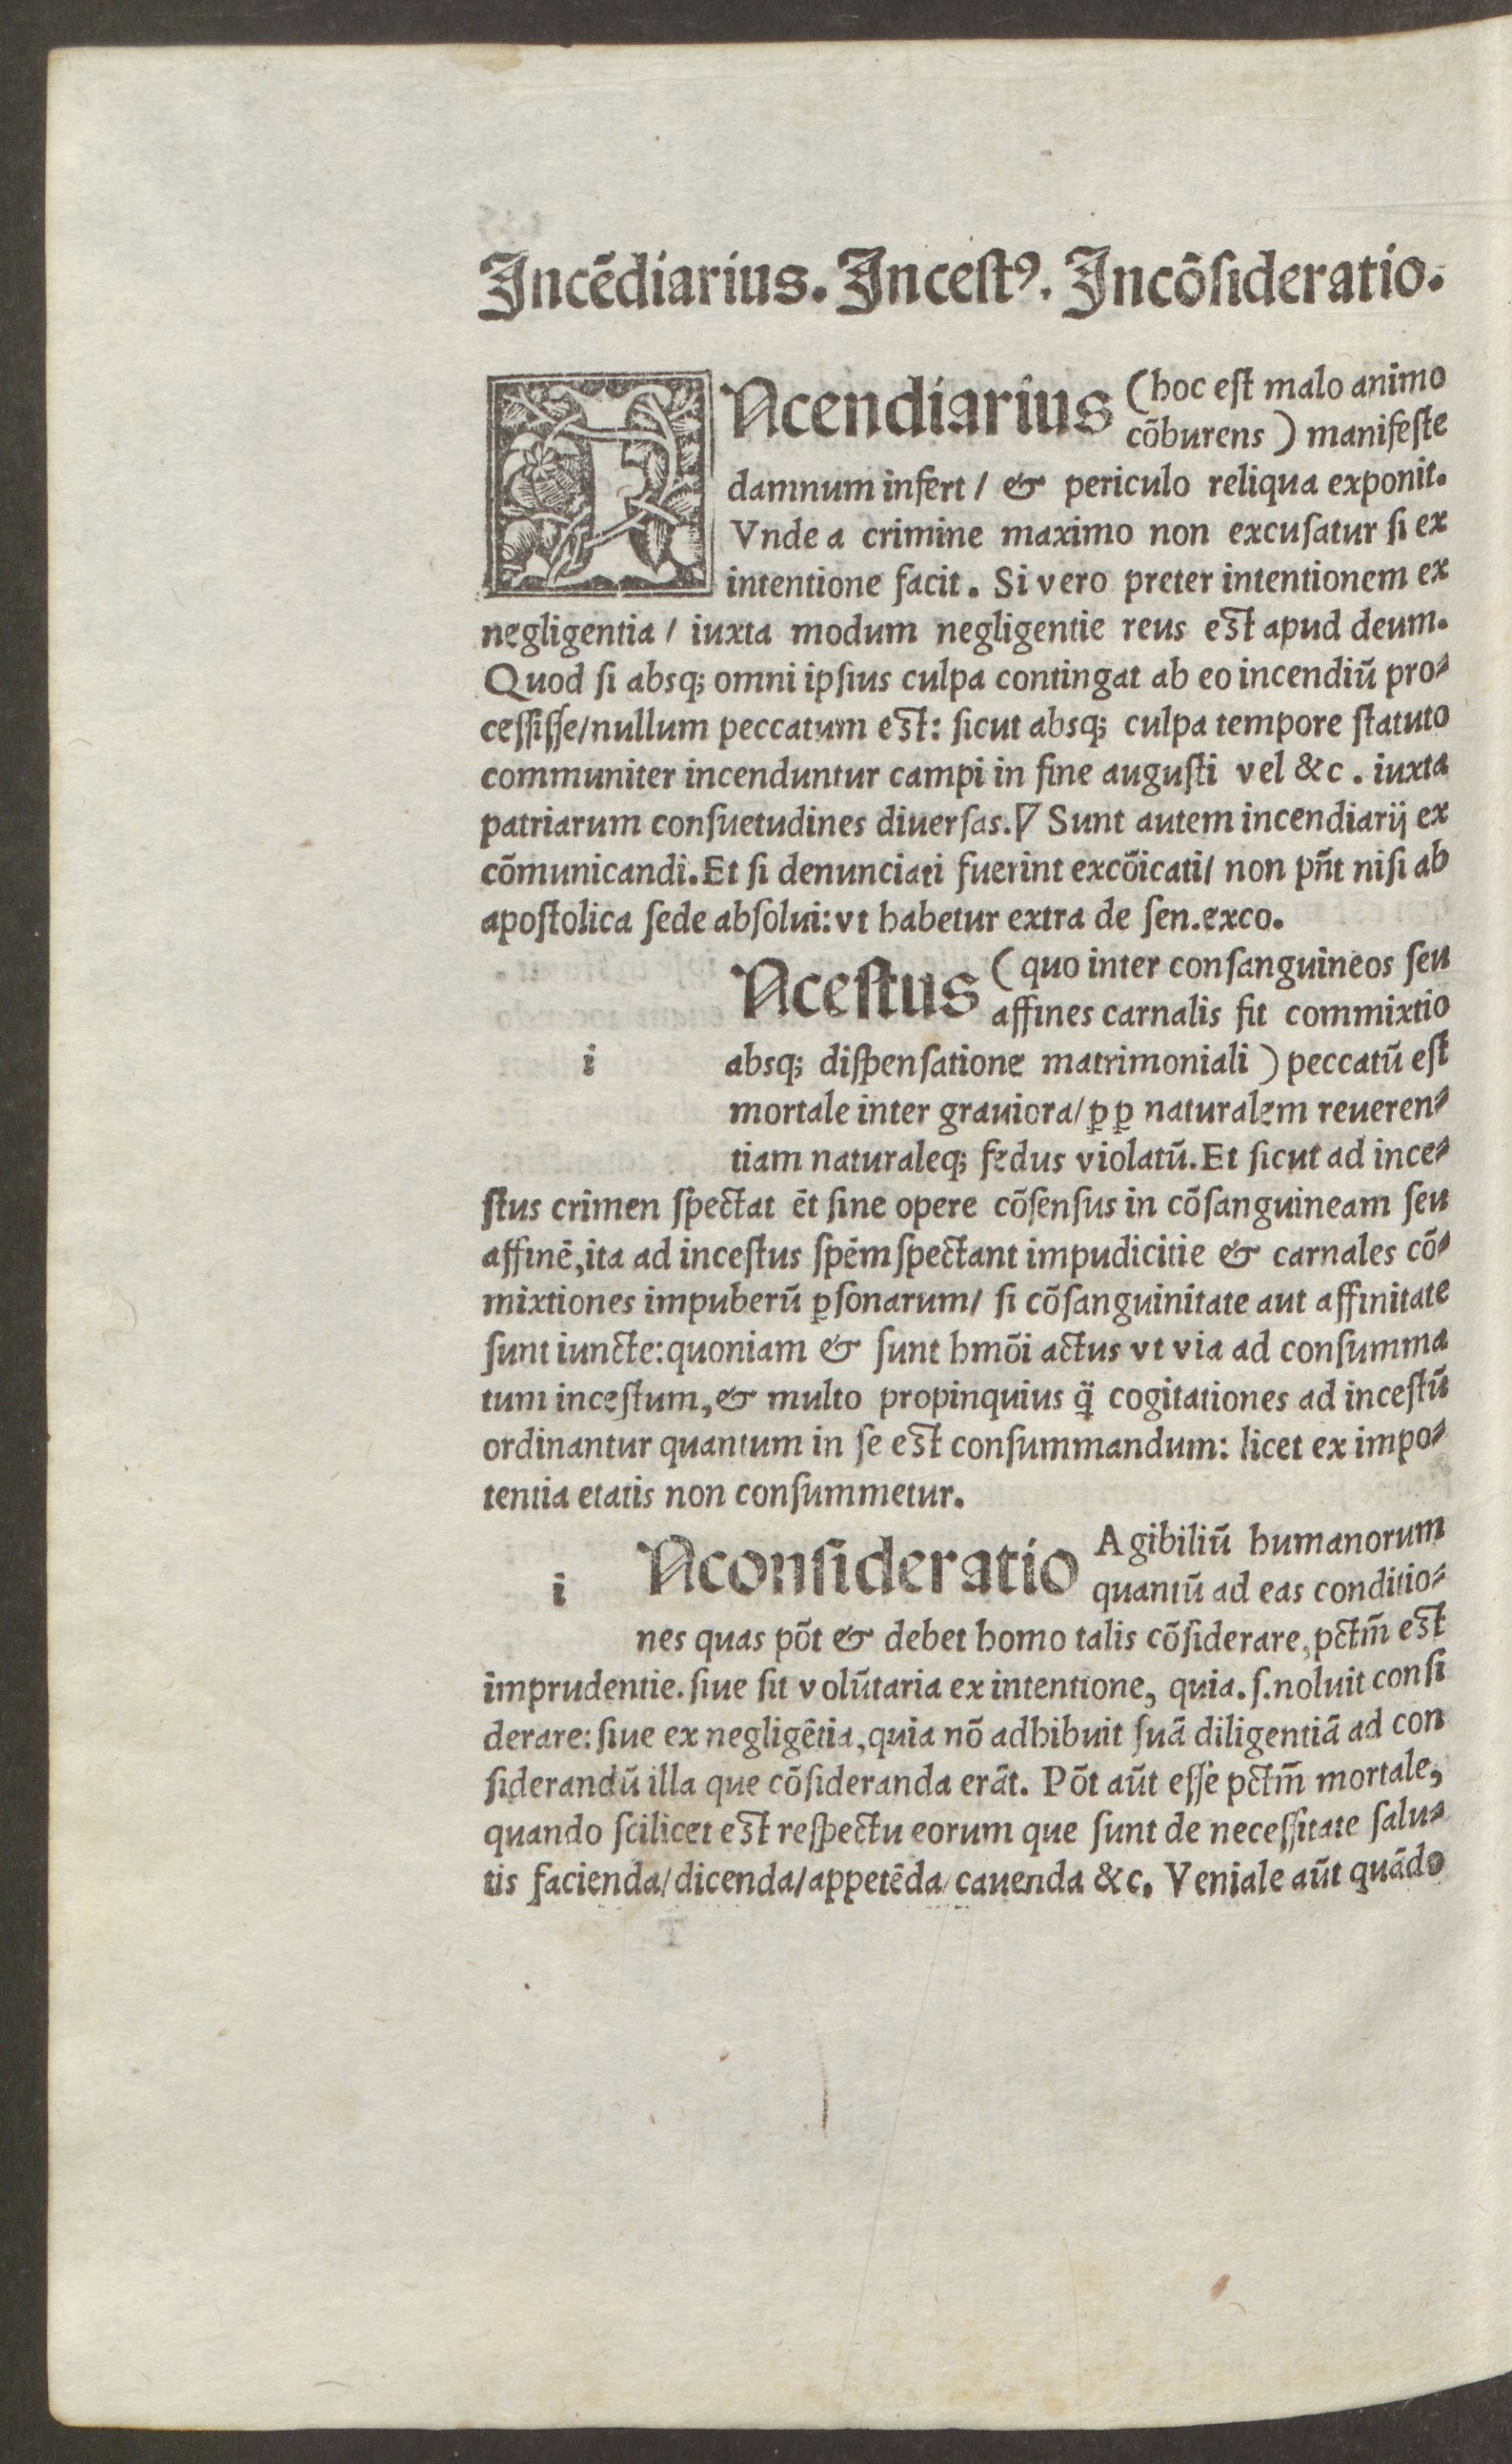 Incēdiarius. Incestꝰ. Incōsideratio.
INcendiarius (hoc est malo animo
cōburens) manifeste
damnum infert / & periculo reliqua exponit.
Vnde a crimine maximo non excusatur si ex
intentione facit. Si vero preter intentionem ex
negligentia / iuxta modum negligentie reus est apud deum.
Quod si absq; omni ipsius culpa contingat ab eo incendiū pro⸗
cessisse/nullum peccatum est: sicut absq; culpa tempore statuto
communiter incenduntur campi in fine augusti vel &c. iuxta
patriarum consuetudines diuersas.∇ Sunt autem incendiarij ex
cōmunicandi. Et si denunciati fuerint excōicati/ non pn̄t nisi ab
apostolica sede absolui: vt habetur extra de sen.exco.
iNcestus (quo inter consanguineos seu
affines carnalis fit commixtio
absq; dispensatione matrimoniali) peccatū est
mortale inter grauiora/ ꝓp naturalem reueren⸗
tiam naturaleq; fedus violatū. Et sicut ad ince⸗
stus crimen spectat ēt sine opere cōsensus in cōsanguineam seu
affinē, ita ad incestus spēm spectant impudicitie & carnales cō⸗
mixtiones impuberū ꝑsonarum/ si cōsanguinitate aut affinitate
sunt iuncte: quoniam & sunt hmōi actus vt via ad consumma
tum incestum, & multo propinquius q̄ cogitationes ad incestū
ordinantur quantum in se est consummandum: licet ex impo⸗
tentia etatis non consummetur.
iNconsideratio Agibiliū humanorum
quantū ad eas conditio⸗
nes quas pōt & debet homo talis cōsiderare, pctm̄ est
imprudentie. siue sit volūtaria ex intentione, quia.s.noluit consi
derare: siue ex negligētia, quia nō adhibuit suā diligentiā ad con
siderandū illa que cōsideranda erāt. Pōt aūt esse pctm̄ mortale,
quando scilicet est respectu eorum que sunt de necessitate salu⸗
tis facienda/dicenda/appetēda/cauenda &c. Veniale aūt quādo